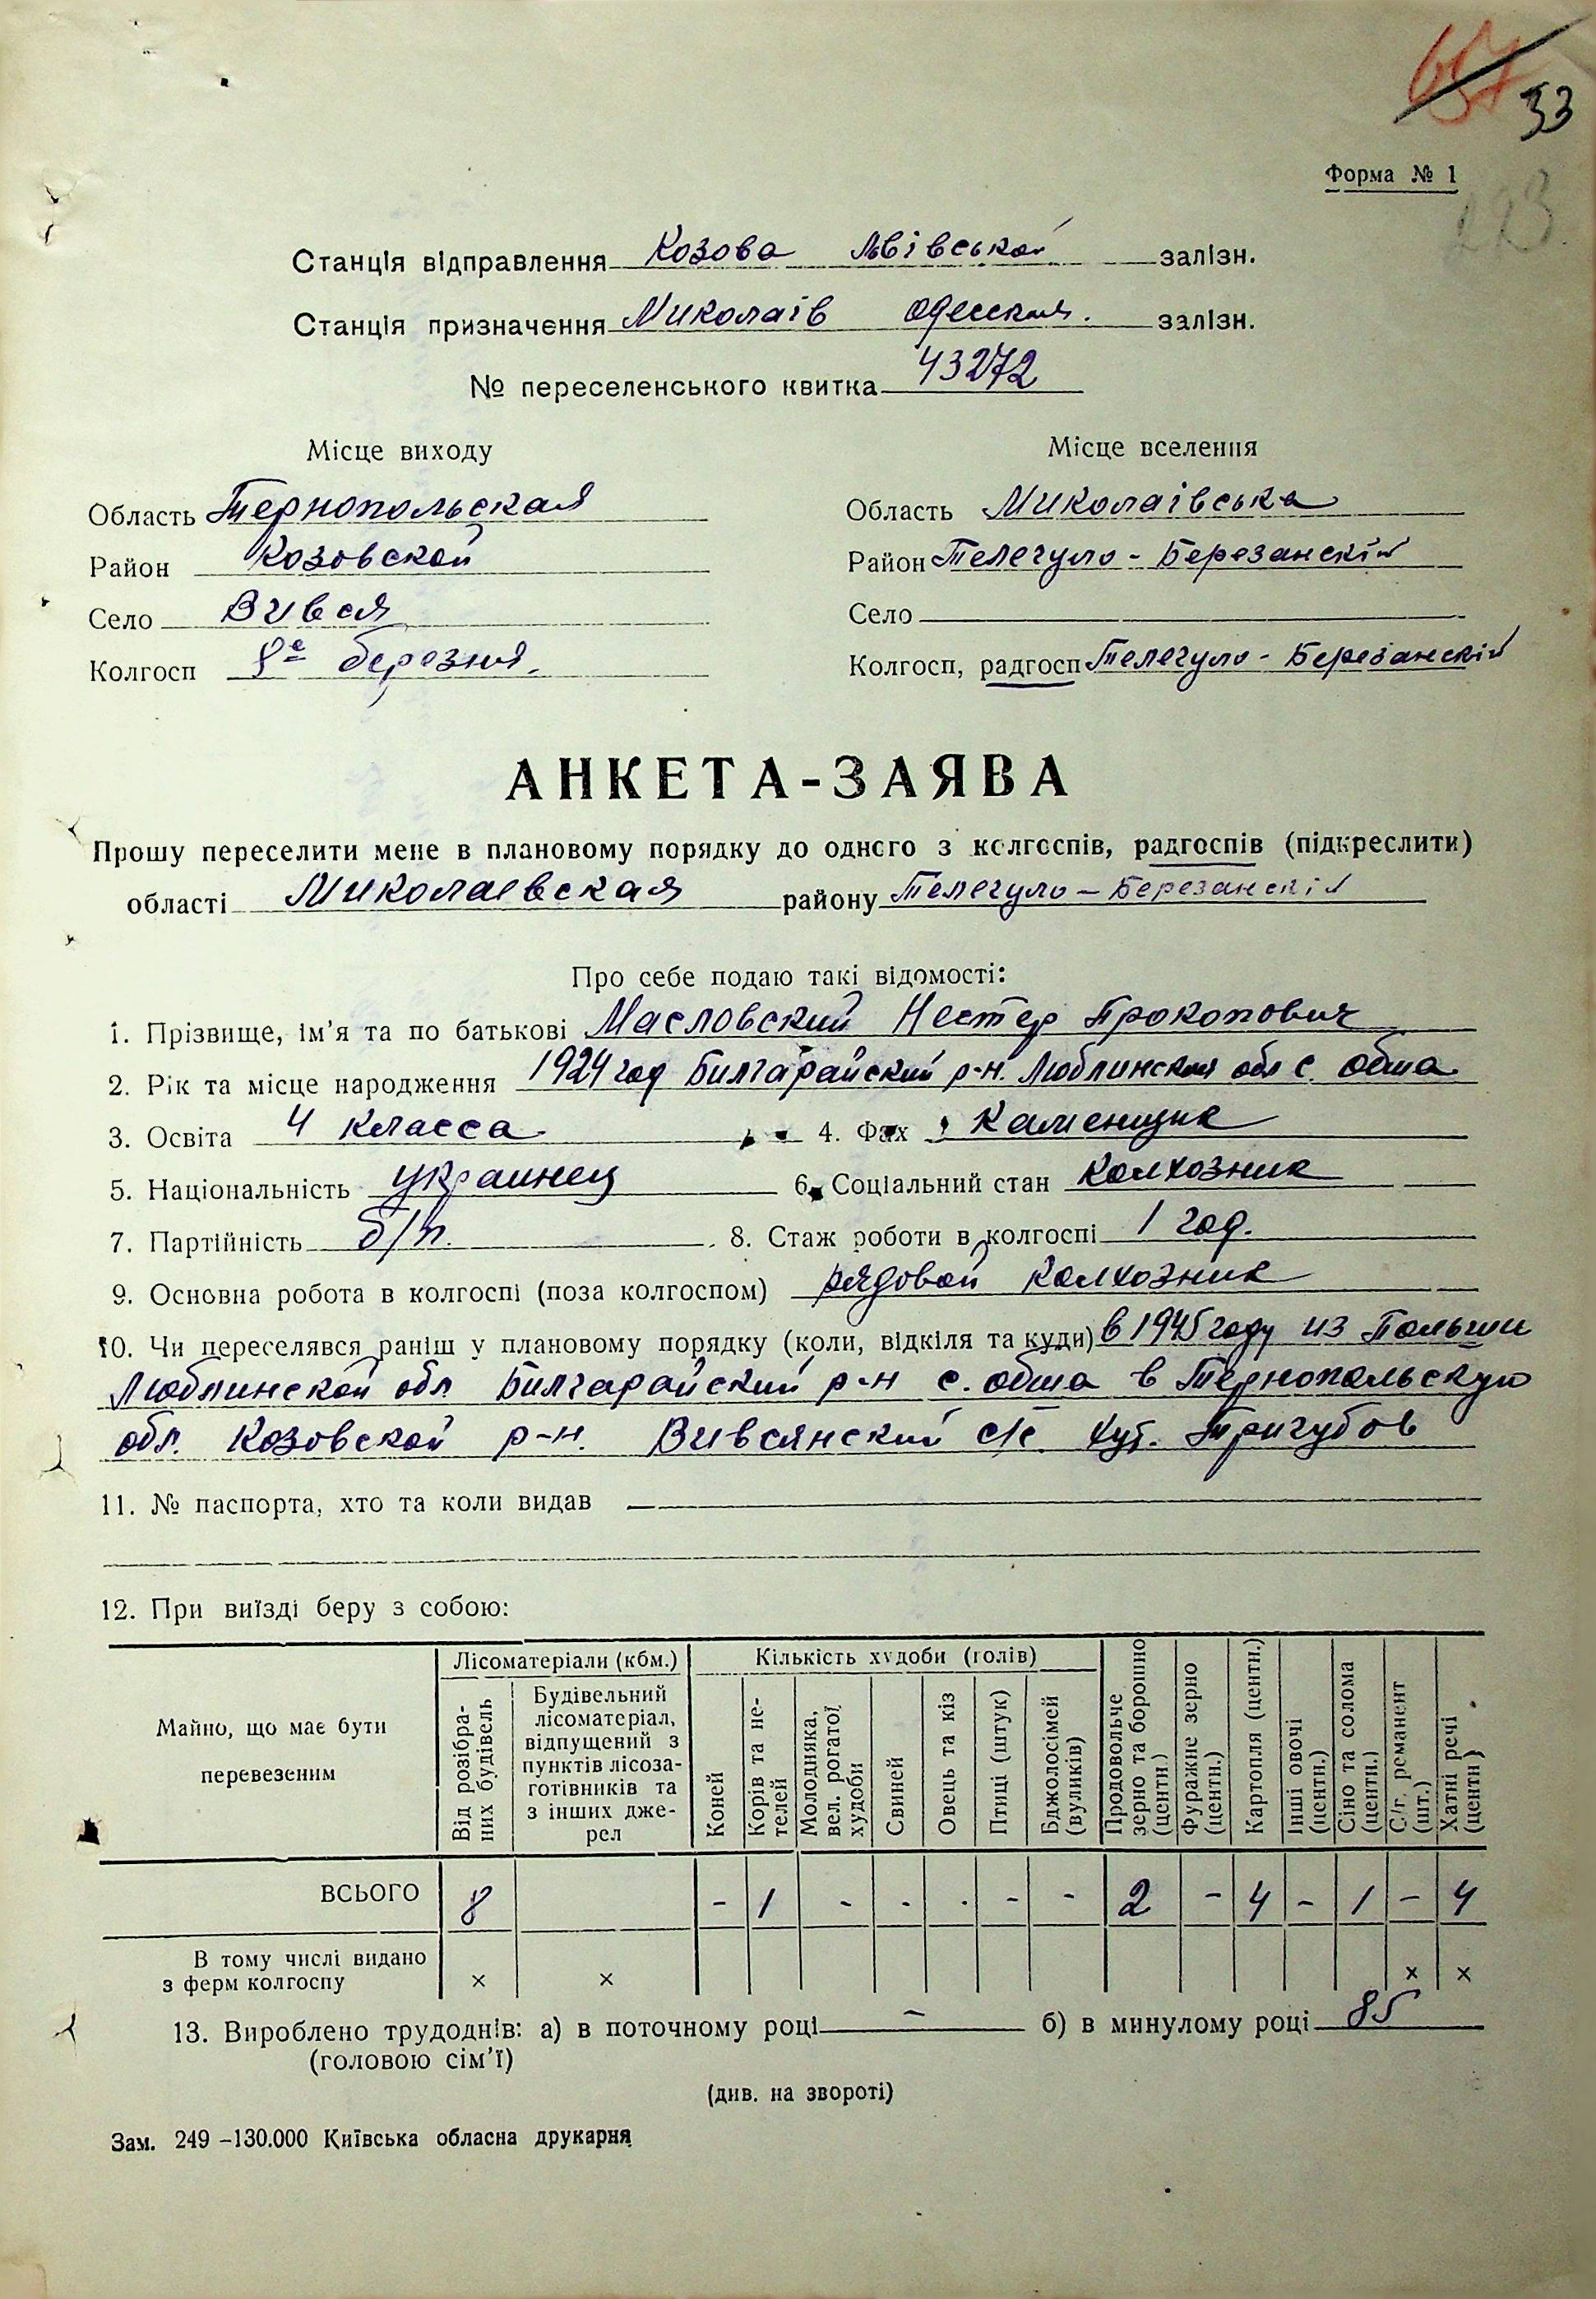 657 33
Форма № 1
223
Станція відправлення Козова Львівської залізн.
Станція призначення Миколаїв Одесская. залізн.
№ переселенського квитка 43272
Місце виходу
Область Тернопольская
Район Козовской
Село Вився
Колгосп 8е березня.
Місце вселення
Область Миколаівська
Район Телегуло-Березанскій
Село
Колгосп, радгосп Телегуло-Березанскій
АНКЕТА-ЗАЯВА
Прошу переселити мене в плановому порядку до одного з колгоспів, радгоспів (підкреслити)
області Николаевская району Телегуло-Березанскій
Про себе подаю такі відомості:
1. Прізвище, ім’я та по батькові Масловский Нестер Прокопович
2. Рік та місце народження 1924 год Билгарайский р-н. Люблинская обл с. Обша
3. Освіта 4 класса 4. Фах Каменщик
5. Національність украинец 6. Соціальний стан колхозник
7. Партійність б/п. 8. Стаж роботи в колгоспі 1 год.
9. Основна робота в колгоспі (поза колгоспом) рядовой колхозник
10. Чи переселявся раніш у плановому порядку (коли, відкіля та куди) в 1945 году из Польши
Люблинской обл Билгарайский р-н с. обша в Тернопольскую
обл. Козовской р-н. Вивсянский с/с хут. Тригубов
11. № паспорта, хто та коли видав —
12. При виїзді беру з собою:
Майно, що має бути перевезеним
Лісоматеріали (кбм.)
Від розібраних будівель
Будівельний лісоматеріал, відпущений з пунктів лісозаготівників та з інших джерел
Кількість худоби (голів)
Коней
Корів та нетелей
Молодняка, вел. рогатої худоби
Свиней
Овець та кіз
Птиці (штук)
Бджолосімей (вуликів)
Продовольче зерно та борошно (центн.)
Фуражне зерно (центн.)
Картопля (центн.)
Інші овочі (центн.)
Сіно та солома (центн.)
С/г. реманент (шт.)
Хатні речі (центн)
ВСЬОГО 8 - 1 - - - - - 2 - 4 - 1 - 4
В тому числі видано з ферм колгоспу × × × ×
13. Вироблено трудоднів: а) в поточному році — б) в минулому році 85
(головою сім’ї)
(див. на звороті)
Зам. 249 –130.000 Київська обласна друкарня